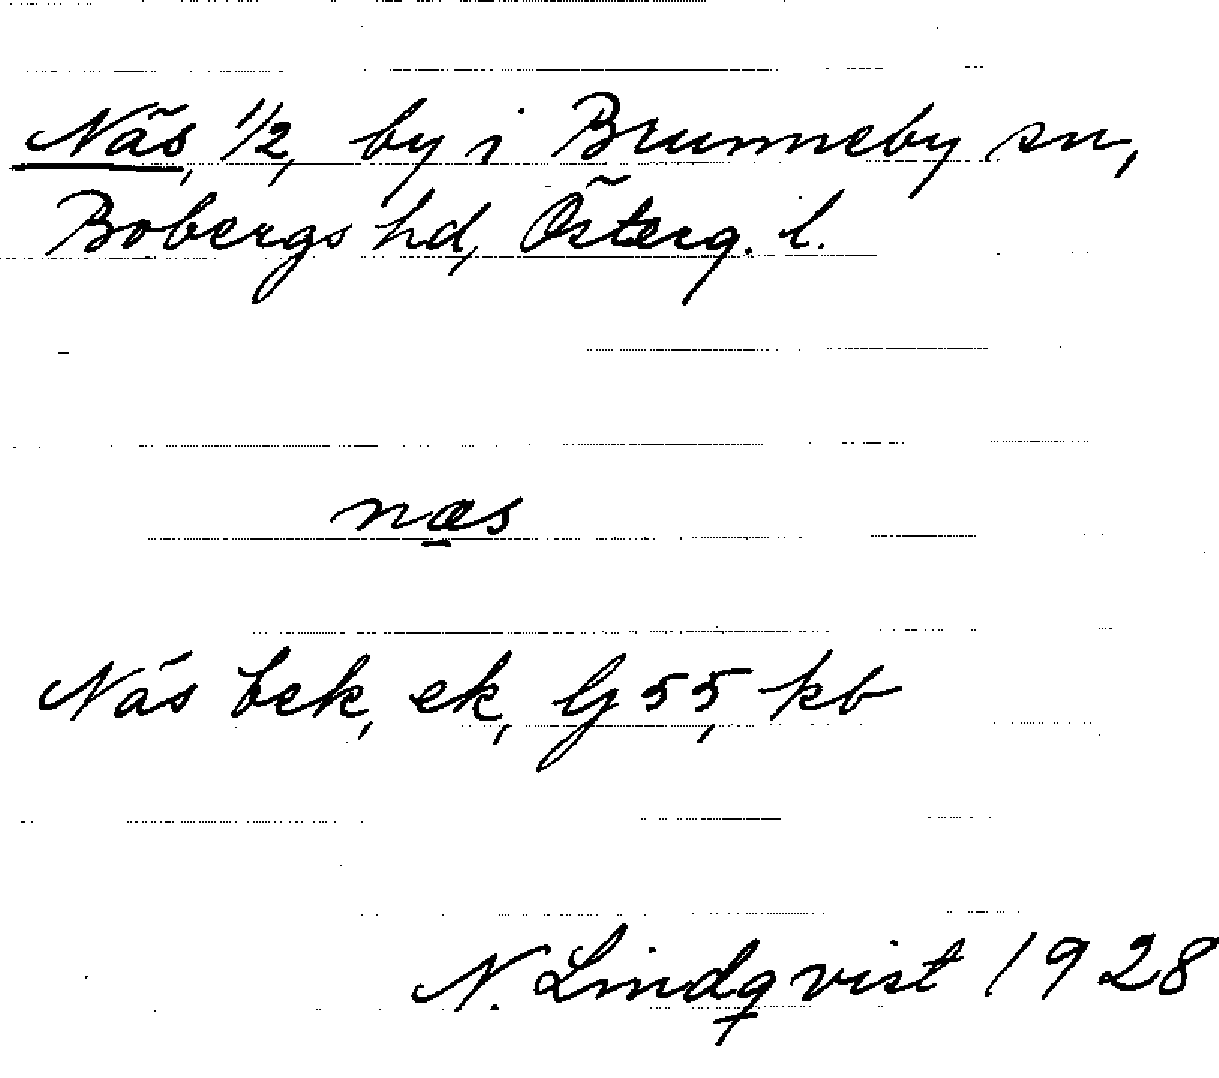 Näs, 1/2, by i Brunneby sn,
Bobergs hd, Österg. l.
næs
Näs bek, ek, G 55, kb
N. Lindqvist 1928